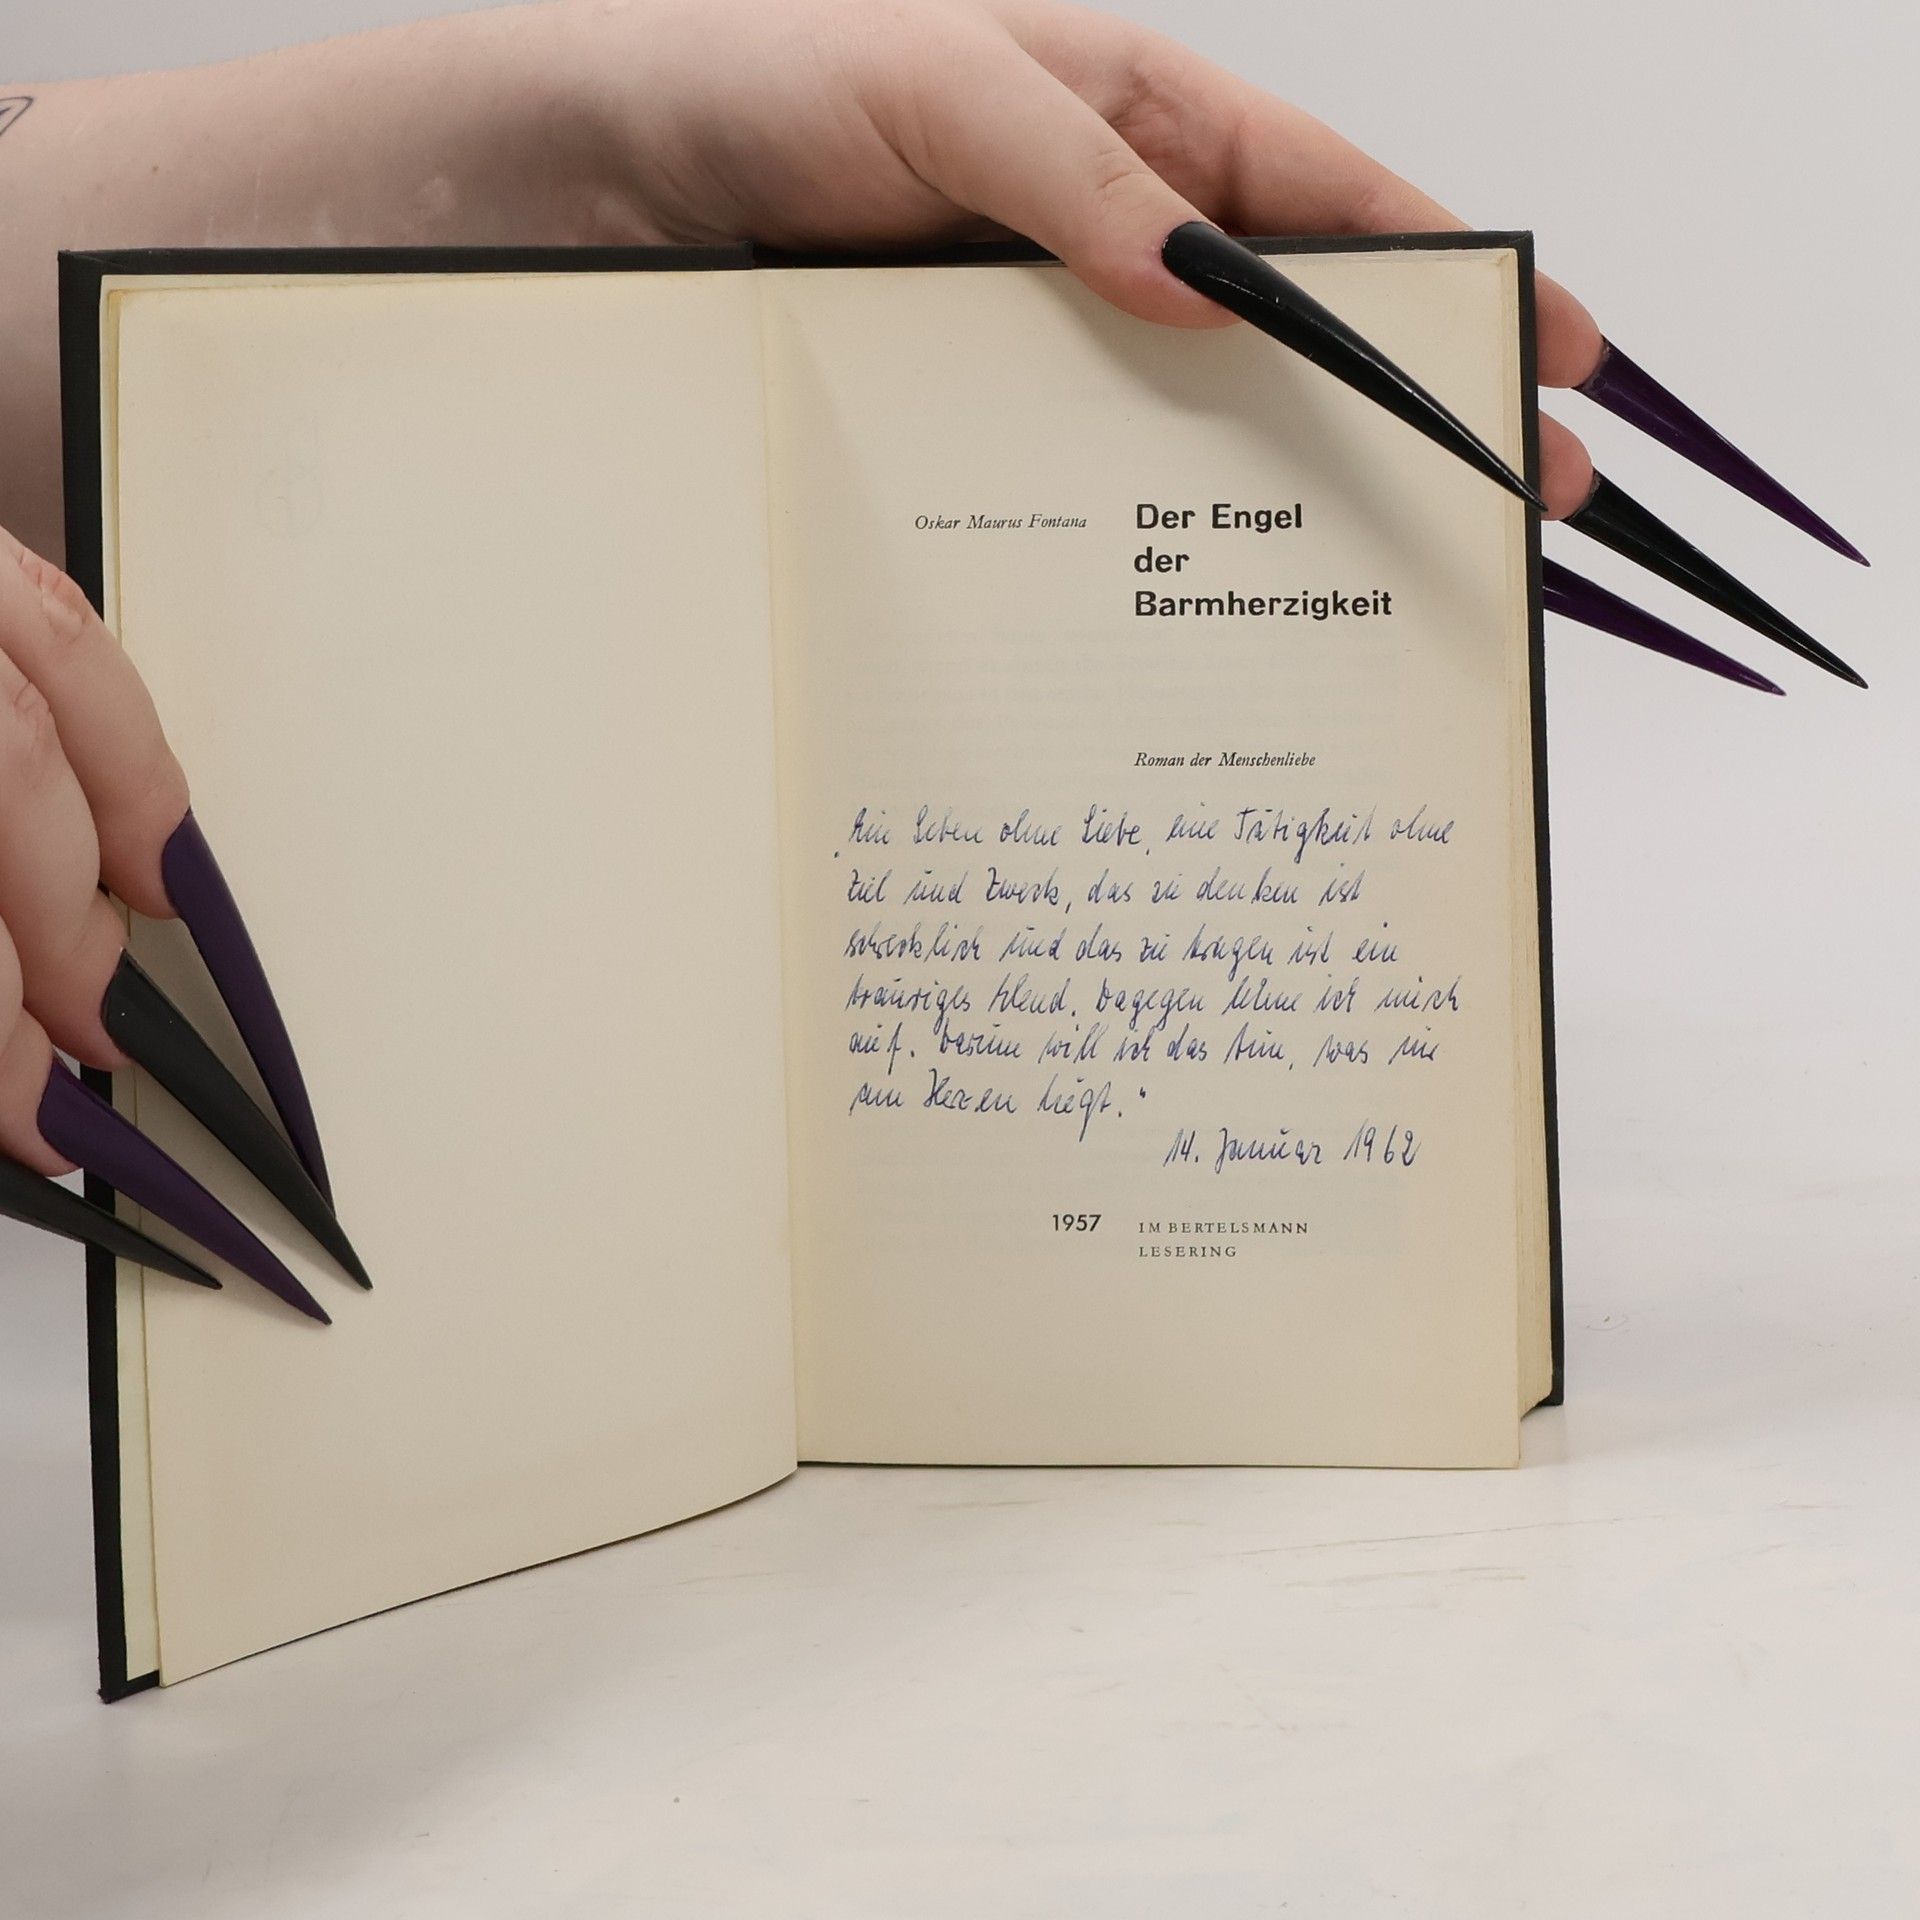 Oskar Maurus Fontana
Der Engel
der
Barmherzigkeit
Roman der Menschenliebe
„Ein Leben ohne Liebe, eine Tätigkeit ohne
Ziel und Zweck, das zu denken ist
schrecklich und das zu tragen ist ein
trauriges Elend. Dagegen lehne ich mich
auf. Darum will ich das tun, was mir
am Herzen liegt."
14. Januar 1962
1957
IM BERTELSMANN
LESERING